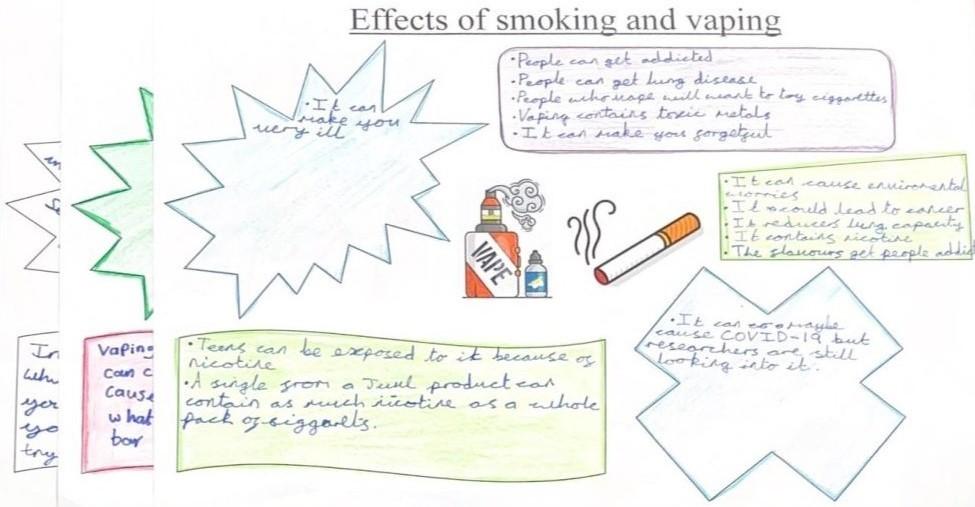 Effects of smoking and vaping
• It can
make you
very ill
• People can get addicted
• People can get lung disease
• People who vape will want to try ciggarettes
• Vaping contains toxic metals
• It can make you forgetful
• It can cause enviromental
worries
• It could lead to cancer
• It reducers lung capacity
• It contains nicotine
• The flavours get people addic
VAPE
• It can maybe
cause COVID-19 but
researchers are still
looking into it.
• Teens can be exposed to it because of
nicotine
• A single from a Juul product can
contain as much nicotine as a whole
pack of siggarets.
In
whe
yer
yo
try
Vaping
can c
cause
what
bar